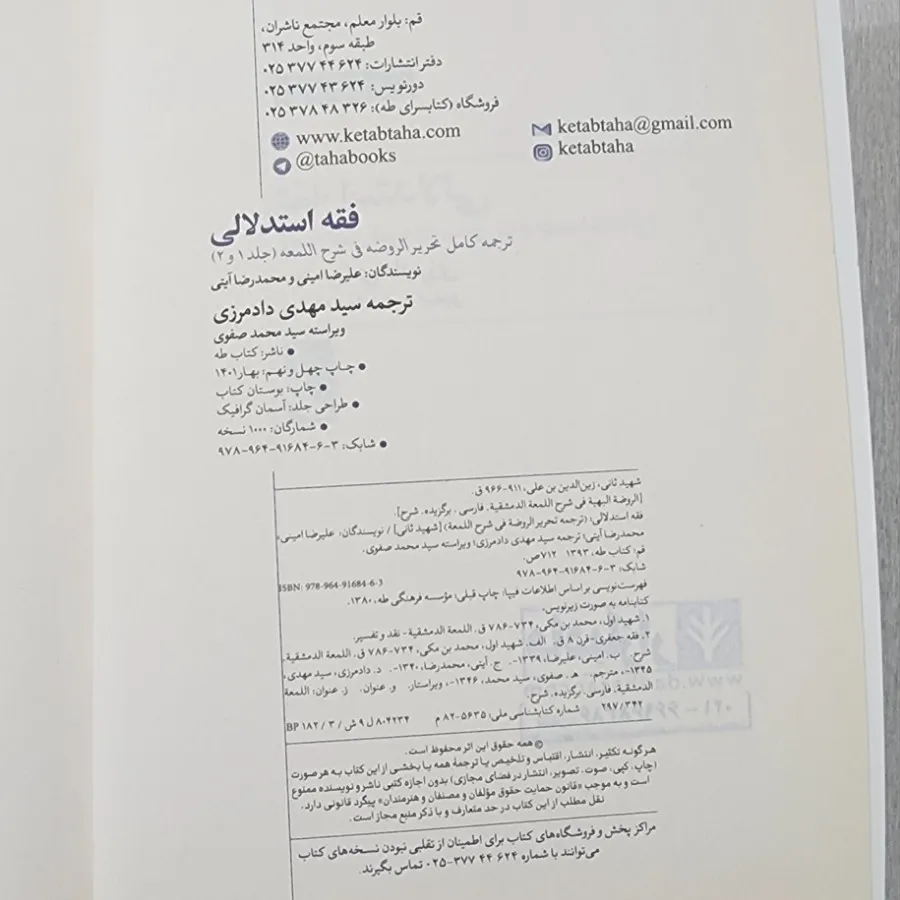 قم: بلوار معلم، مجتمع ناشران،
طبقه سوم، واحد ۳۱۴
دفتر انتشارات: ۶۲۴ ۴۴ ۳۷۷ ۰۲۵
دورنویس: ۶۲۴ ۴۳ ۳۷۷ ۰۲۵
فروشگاه (کتابسرای طه): ۳۲۶ ۴۸ ۳۷۸ ۰۲۵
www.ketabtaha.com
ketabtaha@gmail.com
@tahabooks
ketabtaha
فقه استدلالی
ترجمه کامل تحریر الروضه فی شرح اللمعه (جلد ۱ و ۲)
نویسندگان: علیرضا امینی و محمدرضا آیتی
ترجمه سید مهدی دادمرزی
ویراسته سید محمد صفوی
● ناشر: کتاب طه
● چاپ چهل و نهم: بهار ۱۴۰۱
● چاپ: بوستان کتاب
● طراحی جلد: آسمان گرافیک
● شمارگان: ۱۰۰۰ نسخه
● شابک: ۳-۶-۹۱۶۸۴-۹۶۴-۹۷۸
شهید ثانی، زین‌الدین بن علی، ۹۱۱-۹۶۶ ق.
[الروضة البهیة فی شرح اللمعة الدمشقیة. فارسی. برگزیده. شرح].
فقه استدلالی: (ترجمه تحریر الروضة فی شرح اللمعة) [شهید ثانی] / نویسندگان: علیرضا امینی،
محمدرضا آیتی؛ ترجمه سید مهدی دادمرزی؛ ویراسته سید محمد صفوی.
قم: کتاب طه، ۱۳۹۳ ۷۱۲ ص.
شابک: ۳-۶-۹۱۶۸۴-۹۶۴-۹۷۸
ISBN: 978-964-91684-6-3
فهرست‌نویسی بر اساس اطلاعات فیپا: چاپ قبلی: مؤسسه فرهنگی طه، ۱۳۸۰.
کتابنامه به صورت زیرنویس.
۱. شهید اول، محمد بن مکی، ۷۳۴-۷۸۶ ق. اللمعة الدمشقیة - نقد و تفسیر.
۲. فقه جعفری - قرن ۸ ق. الف. شهید اول، محمد بن مکی، ۷۳۴-۷۸۶ ق. اللمعة الدمشقیة.
شرح. ب. امینی، علیرضا، ۱۳۳۹-. ج. آیتی، محمدرضا، ۱۳۴۰-. د. دادمرزی، سید مهدی،
۱۳۴۵-، مترجم. ه. صفوی، سید محمد، ۱۳۴۶-، ویراستار. و. عنوان. ز. عنوان: اللمعة
الدمشقیة. فارسی. برگزیده. شرح.
۲۹۷/۳۴۲ شماره کتابشناسی ملی: ۵۶۳۵-۸۲ م ۸۰۴۲۳۴ ل ۹ ش / ۳ / ۱۸۲ BP
© همه حقوق این اثر محفوظ است.
هرگونه تکثیر، انتشار، اقتباس و تلخیص یا ترجمۀ همه یا بخشی از این کتاب به هر صورت
(چاپ، کپی، صوت، تصویر، انتشار در فضای مجازی) بدون اجازه کتبی ناشر و نویسنده ممنوع
است و به موجب «قانون حمایت حقوق مؤلفان و مصنفان و هنرمندان» پیگرد قانونی دارد.
نقل مطلب از این کتاب در حد متعارف و با ذکر منبع مجاز است.
مراکز پخش و فروشگاه‌های کتاب برای اطمینان از تقلبی نبودن نسخه‌های کتاب
می‌توانند با شماره ۶۲۴ ۴۴ ۳۷۷-۰۲۵ تماس بگیرند.